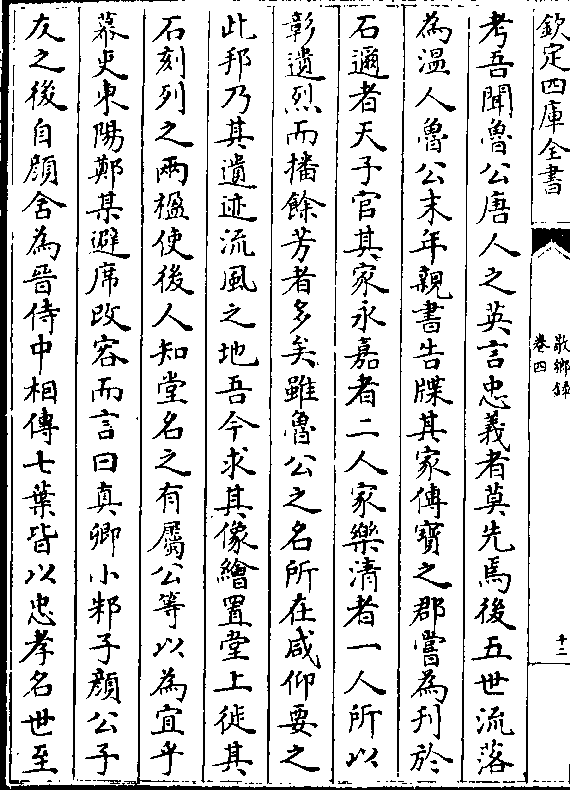 欽定四庫全書
敬鄉錄
卷四
十二
考吾聞魯公唐人之英言忠義者莫先焉後五世流落
為溫人魯公末年親書告牒其家傳寶之郡嘗為刋於
石邇者天子官其家永嘉者二人家樂清者一人所以
彰遺烈而播餘芳者多矣雖魯公之名所在咸仰要之
此邦乃其遺迹流風之地吾今求其像繪置堂上徙其
石刻列之兩楹使後人知堂名之有屬公等以為宜乎
幕吏東陽鄭某避席改容而言曰真卿小邾子顔公子
友之後自顔含為晉侍中相傳七葉皆以忠孝名世至